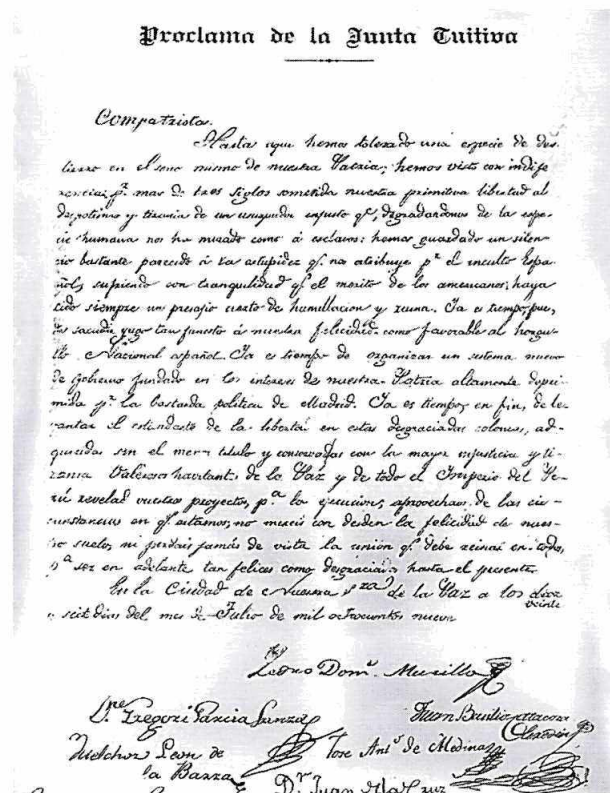 Proclama de la Junta Tuitiva
Compatriotas.
Hasta aqui hemos tolerado una especie de des-
tierro en el seno mismo de nuestra Patria; hemos visto con indife
rencia pr. mas de tres siglos sometida nuestra primitiva libertad al
despotismo y tirania de un usurpador injusto qe., degradandonos de la espe-
cie humana nos ha mirado como á esclavos: hemos guardado un silen-
cio bastante parecido á la estupidez qe. nos atribuye pr. el inculto Espa-
ñol, sufriendo con tranquilidad qe. el merito de los americanos, haya
sido siempre un presajio cierto de humillacion y ruina. Ya es tiempo, pues,
de sacudir yugo tan funesto á nuestra felicidad, como favorable al horgu-
llo Nacional español. Ya es tiempo de organizar un sistema nuevo
de Gobierno fundado en los intereses de nuestra Patria altamente depri-
mida pr. la bastarda politica de Madrid. Ya es tiempo, en fin, de le-
vantar el estandarte de la libertad en estas desgraciadas colonias, ad-
queridas sin el menor titulo y conservadas con la mayor injusticia y ti-
rania Valerosos havitantes de la Paz y de todo el Imperio del Pe-
rú revelad vuestros proyectos, pa. la ejecucion; aprovechaos de las cir-
cunstancias en qe. estamos; no mireis con desden la felicidad de nues-
tro suelo, ni perdais jamás de vista la union qe. debe reinar en todos,
pa. ser en adelante tan felices como desgraciados hasta el presente.
En la Ciudad de Nuestra Sra. de la Paz a los diez
veinte
y seis dias del mes de Julio de mil ochocientos nueve
Pedro Domo. Murillo
Dr. Gregorio Garcia Lanza
Juan Basilio Catacora
Melchor Leon de
la Barra
Jose Anto. de Medina
Dr. Juan de la Cruz